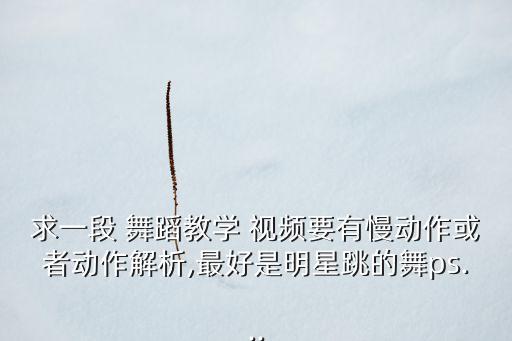 求一段 舞蹈教学 视频要有慢动作或
者动作解析,最好是明星跳的舞ps.
..